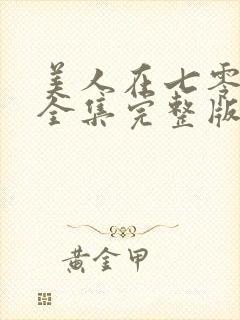 美人在七零
全集完整版
黄金甲